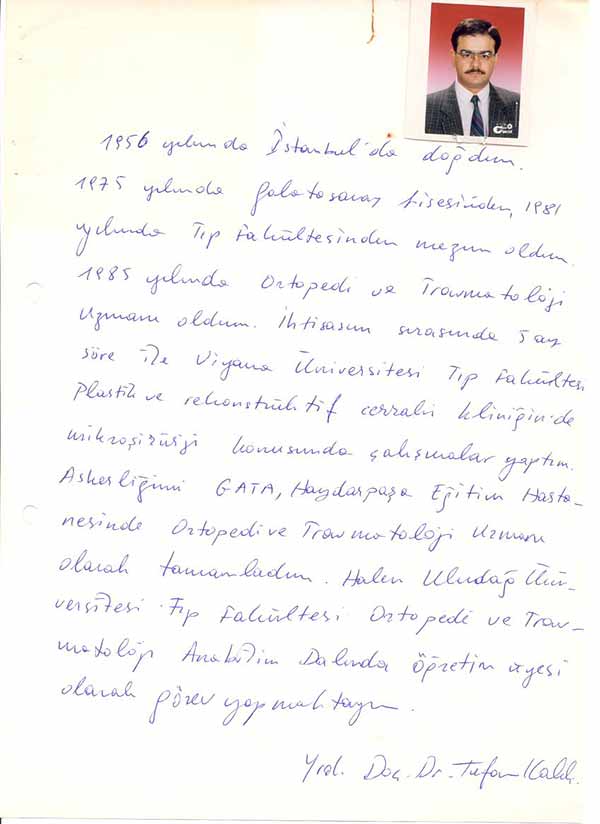 1956 yılında İstanbul'da doğdum.
1975 yılında Galatasaray Lisesinden, 1981
yılında Tıp Fakültesinden mezun oldum.
1985 yılında Ortopedi ve Travmatoloji
Uzmanı oldum. İhtisasım sırasında 5 ay
süre ile Viyana Üniversitesi Tıp Fakültesi
Plastik ve rekonstrüktif cerrahi kliniğin'de
mikroşirürji konusunda çalışmalar yaptım.
Askerliğimi GATA, Haydarpaşa Eğitim Hasta-
nesinde Ortopedi ve Travmatoloji Uzmanı
olarak tamamladım. Halen Uludağ Üni-
versitesi Tıp Fakültesi Ortopedi ve Trav-
matoloji Anabilim Dalında Öğretim üyesi
olarak görev yapmaktayım.
Yrd. Doç. Dr. Tufan